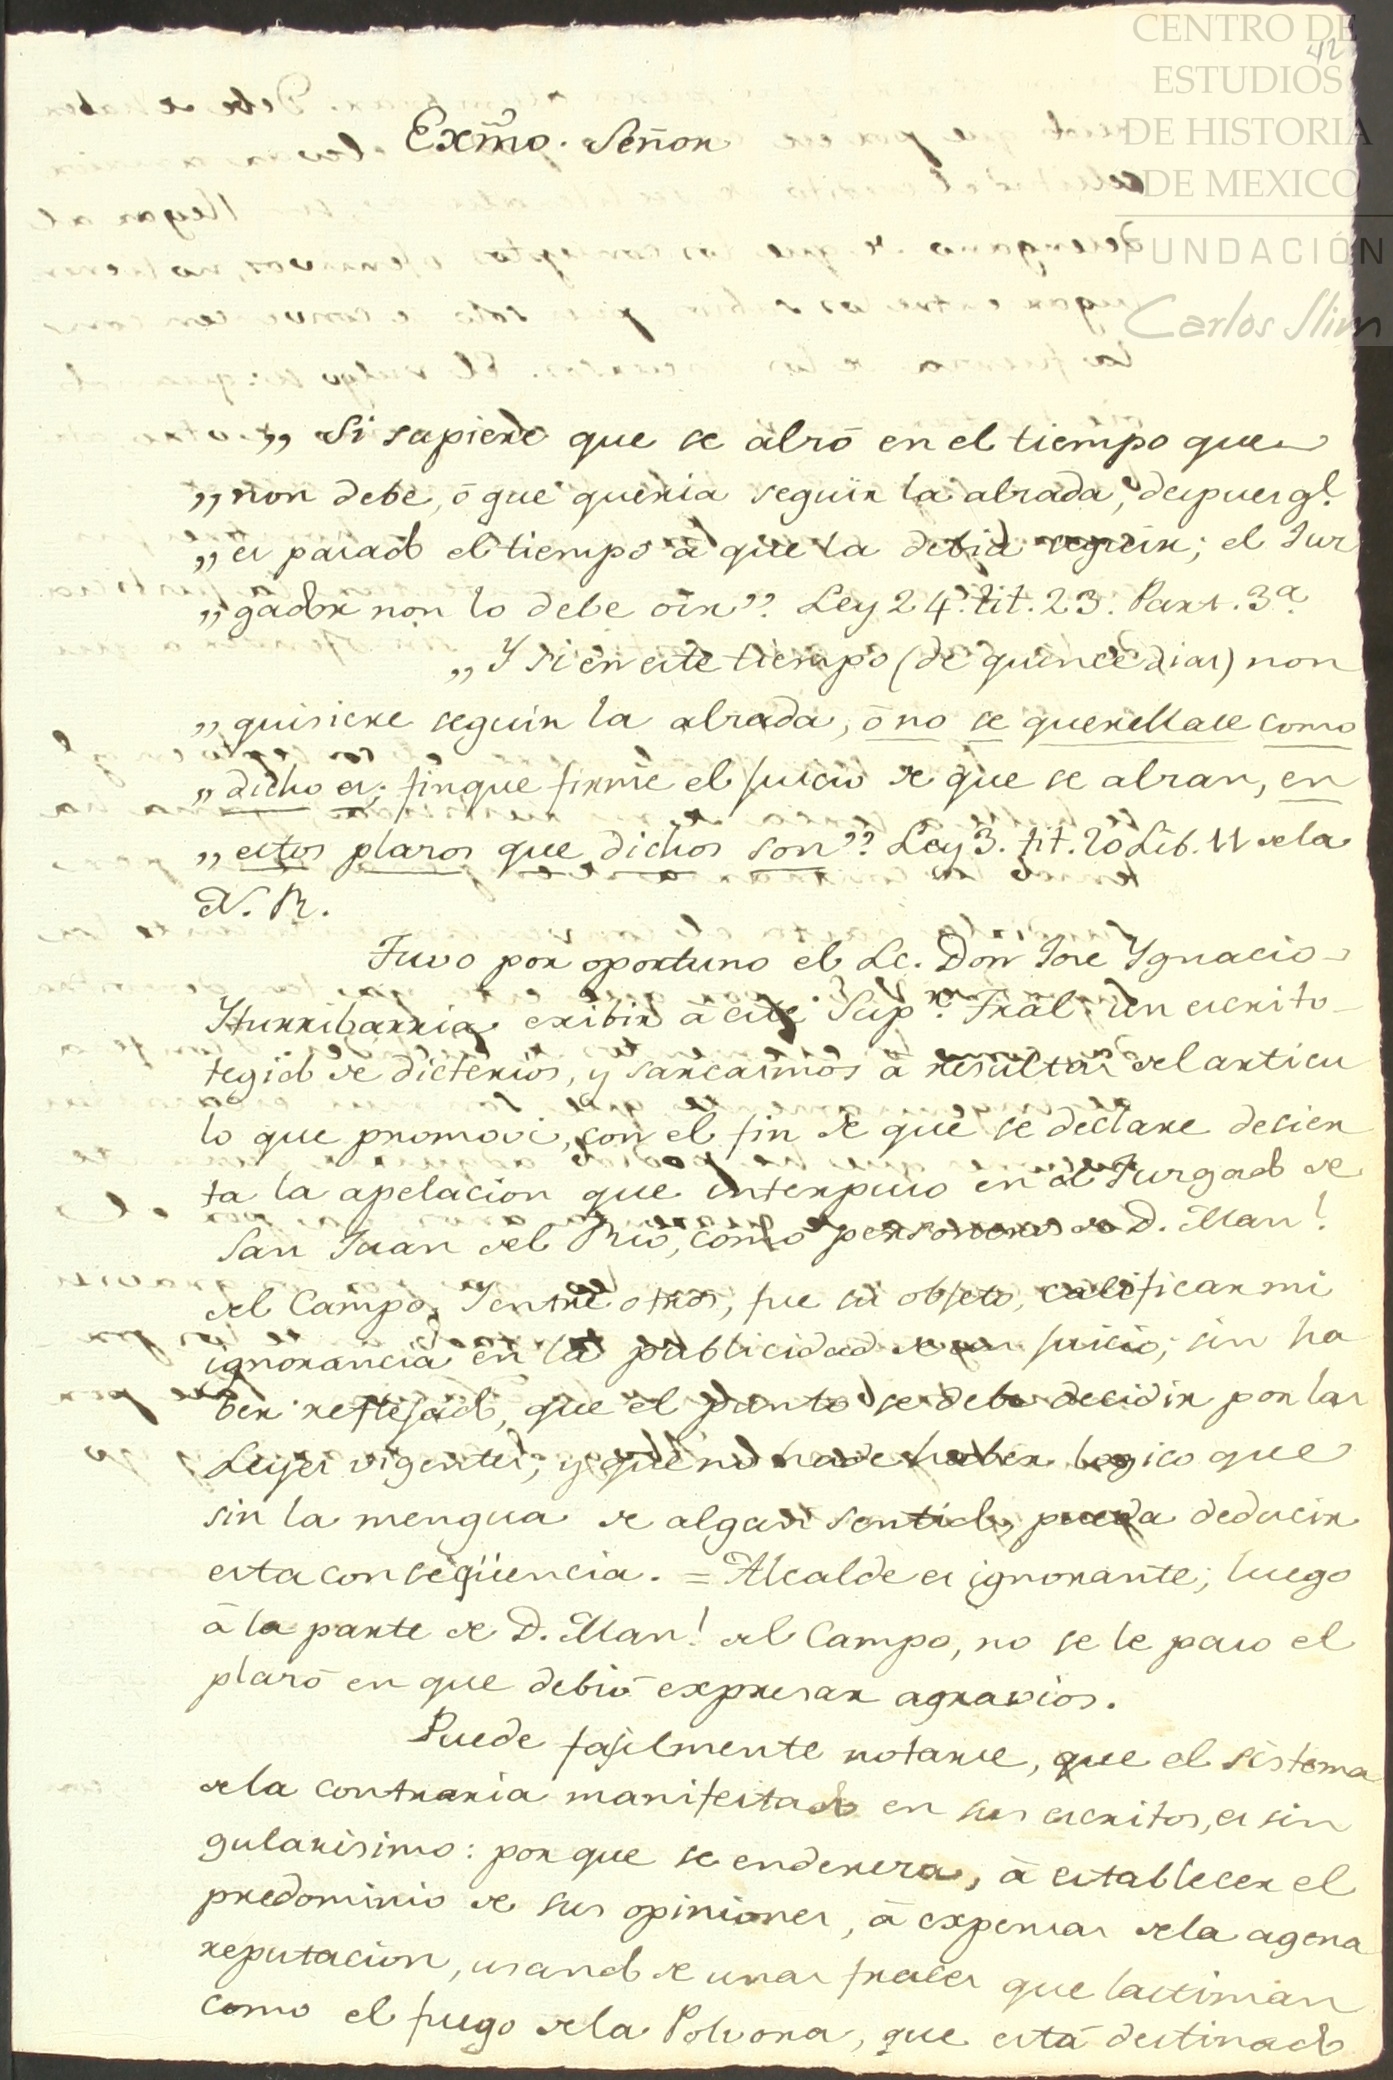 CENTRO DE
ESTUDIOS
DE HISTORIA
DE MEXICO
FUNDACIÓN
Carlos Slim
42
Exmo. Señor
„ Si supiere que se alzó en el tiempo que
„ non debe, ó que queria seguir la alzada, despues q.l
„ es pasado el tiempo á que la debia seguir; el Juz
„ gador non lo debe oir” Ley 24. tit. 23. Part. 3.a
„ Y si en este tiempo (de quince dias) non
„ quisiere seguir la alzada, ó no se querellase como
„ dicho es; finque firme el juicio de que se alzan, en
„ estos plazos que dichos son” Ley 3. tit. 20 Lib. 11 de la
N. R.
Tuvo por oportuno el Lc. Don Jose Ygnacio
Yturribarria exibir á ese Sup.r Tral. un escrito
tegido de dicterios, y sarcasmos á resultas del articu
lo que promovi, con el fin de que se declare desier
ta la apelacion que interpuso en el Jurgado de
San Juan del Rio, como personero de D. Man.l
del Campo. Y entre otros, fue su objeto, calificar mi
ignorancia en la publicidad de un juicio; sin ha
ber reflejado, que el punto se debe decidir por las
Leyes vigentes; y que no ha de haber logico que
sin la mengua de algun sentido, pueda deducir
esta conseqüencia. = Alcalde es ignorante; luego
á la parte de D. Man.l del Campo, no se le paso el
plazo en que debió expresar agravios.
Puede fasilmente notarse, que el sistema
de la contraria manifestado en sus escritos, es sin
gularisimo: por que se endereza, á establecer el
predominio de sus opiniones, á expensas de la agena
reputacion, usando de unas frases que lastiman
como el fuego de la Polvora, que está destinado